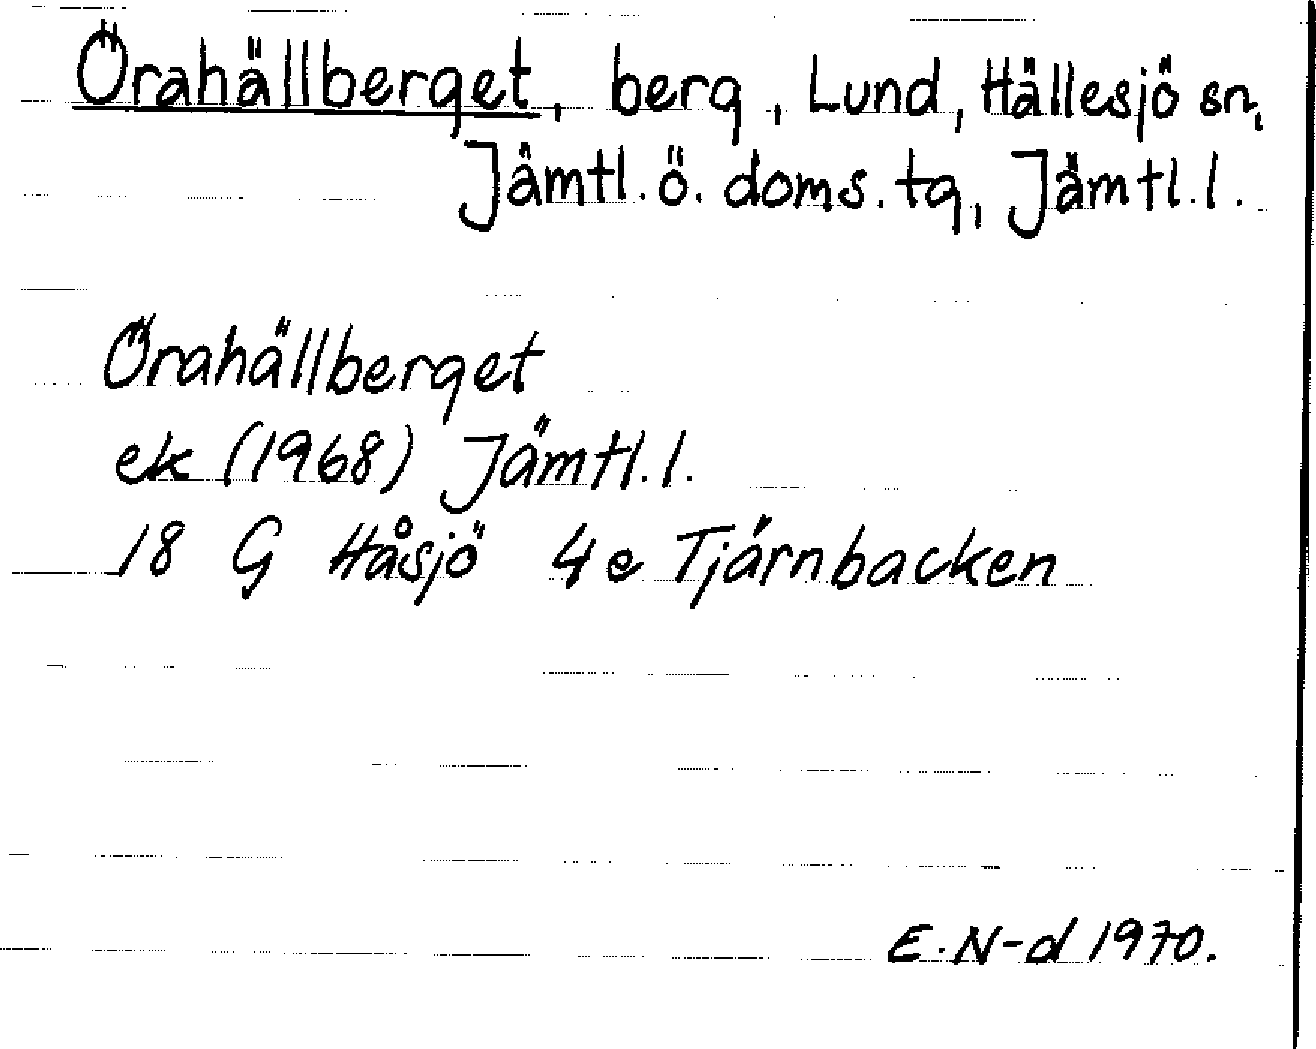 Örahällberget, berg, Lund, Hällesjö sn,
Jämtl. ö. doms. tg, Jämtl. l.
Örahällberget
ek (1968) Jämtl. l.
18 G Håsjö 4e Tjärnbacken
E. N-d 1970.